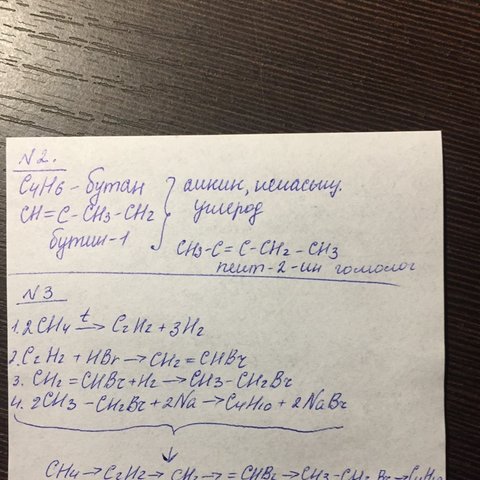 N2.
C4H6 - бутан } алкин, ненасыщ.
CH=C-CH3-CH2 углерод
бутин-1
CH3-C=C-CH2-CH3
пент-2-ин гомолог
N3
1. 2CH4 t→ C2H2 + 3H2
2. C2H2 + HBr → CH2 = CHBr
3. CH2 = CHBr + H2 → CH3 - CH2Br
4. 2CH3 - CH2Br + 2Na → C4H10 + 2NaBr
↓
CH4 → C2H2 → CH2 → = CHBr → CH3 - CH2 Br → C4H10